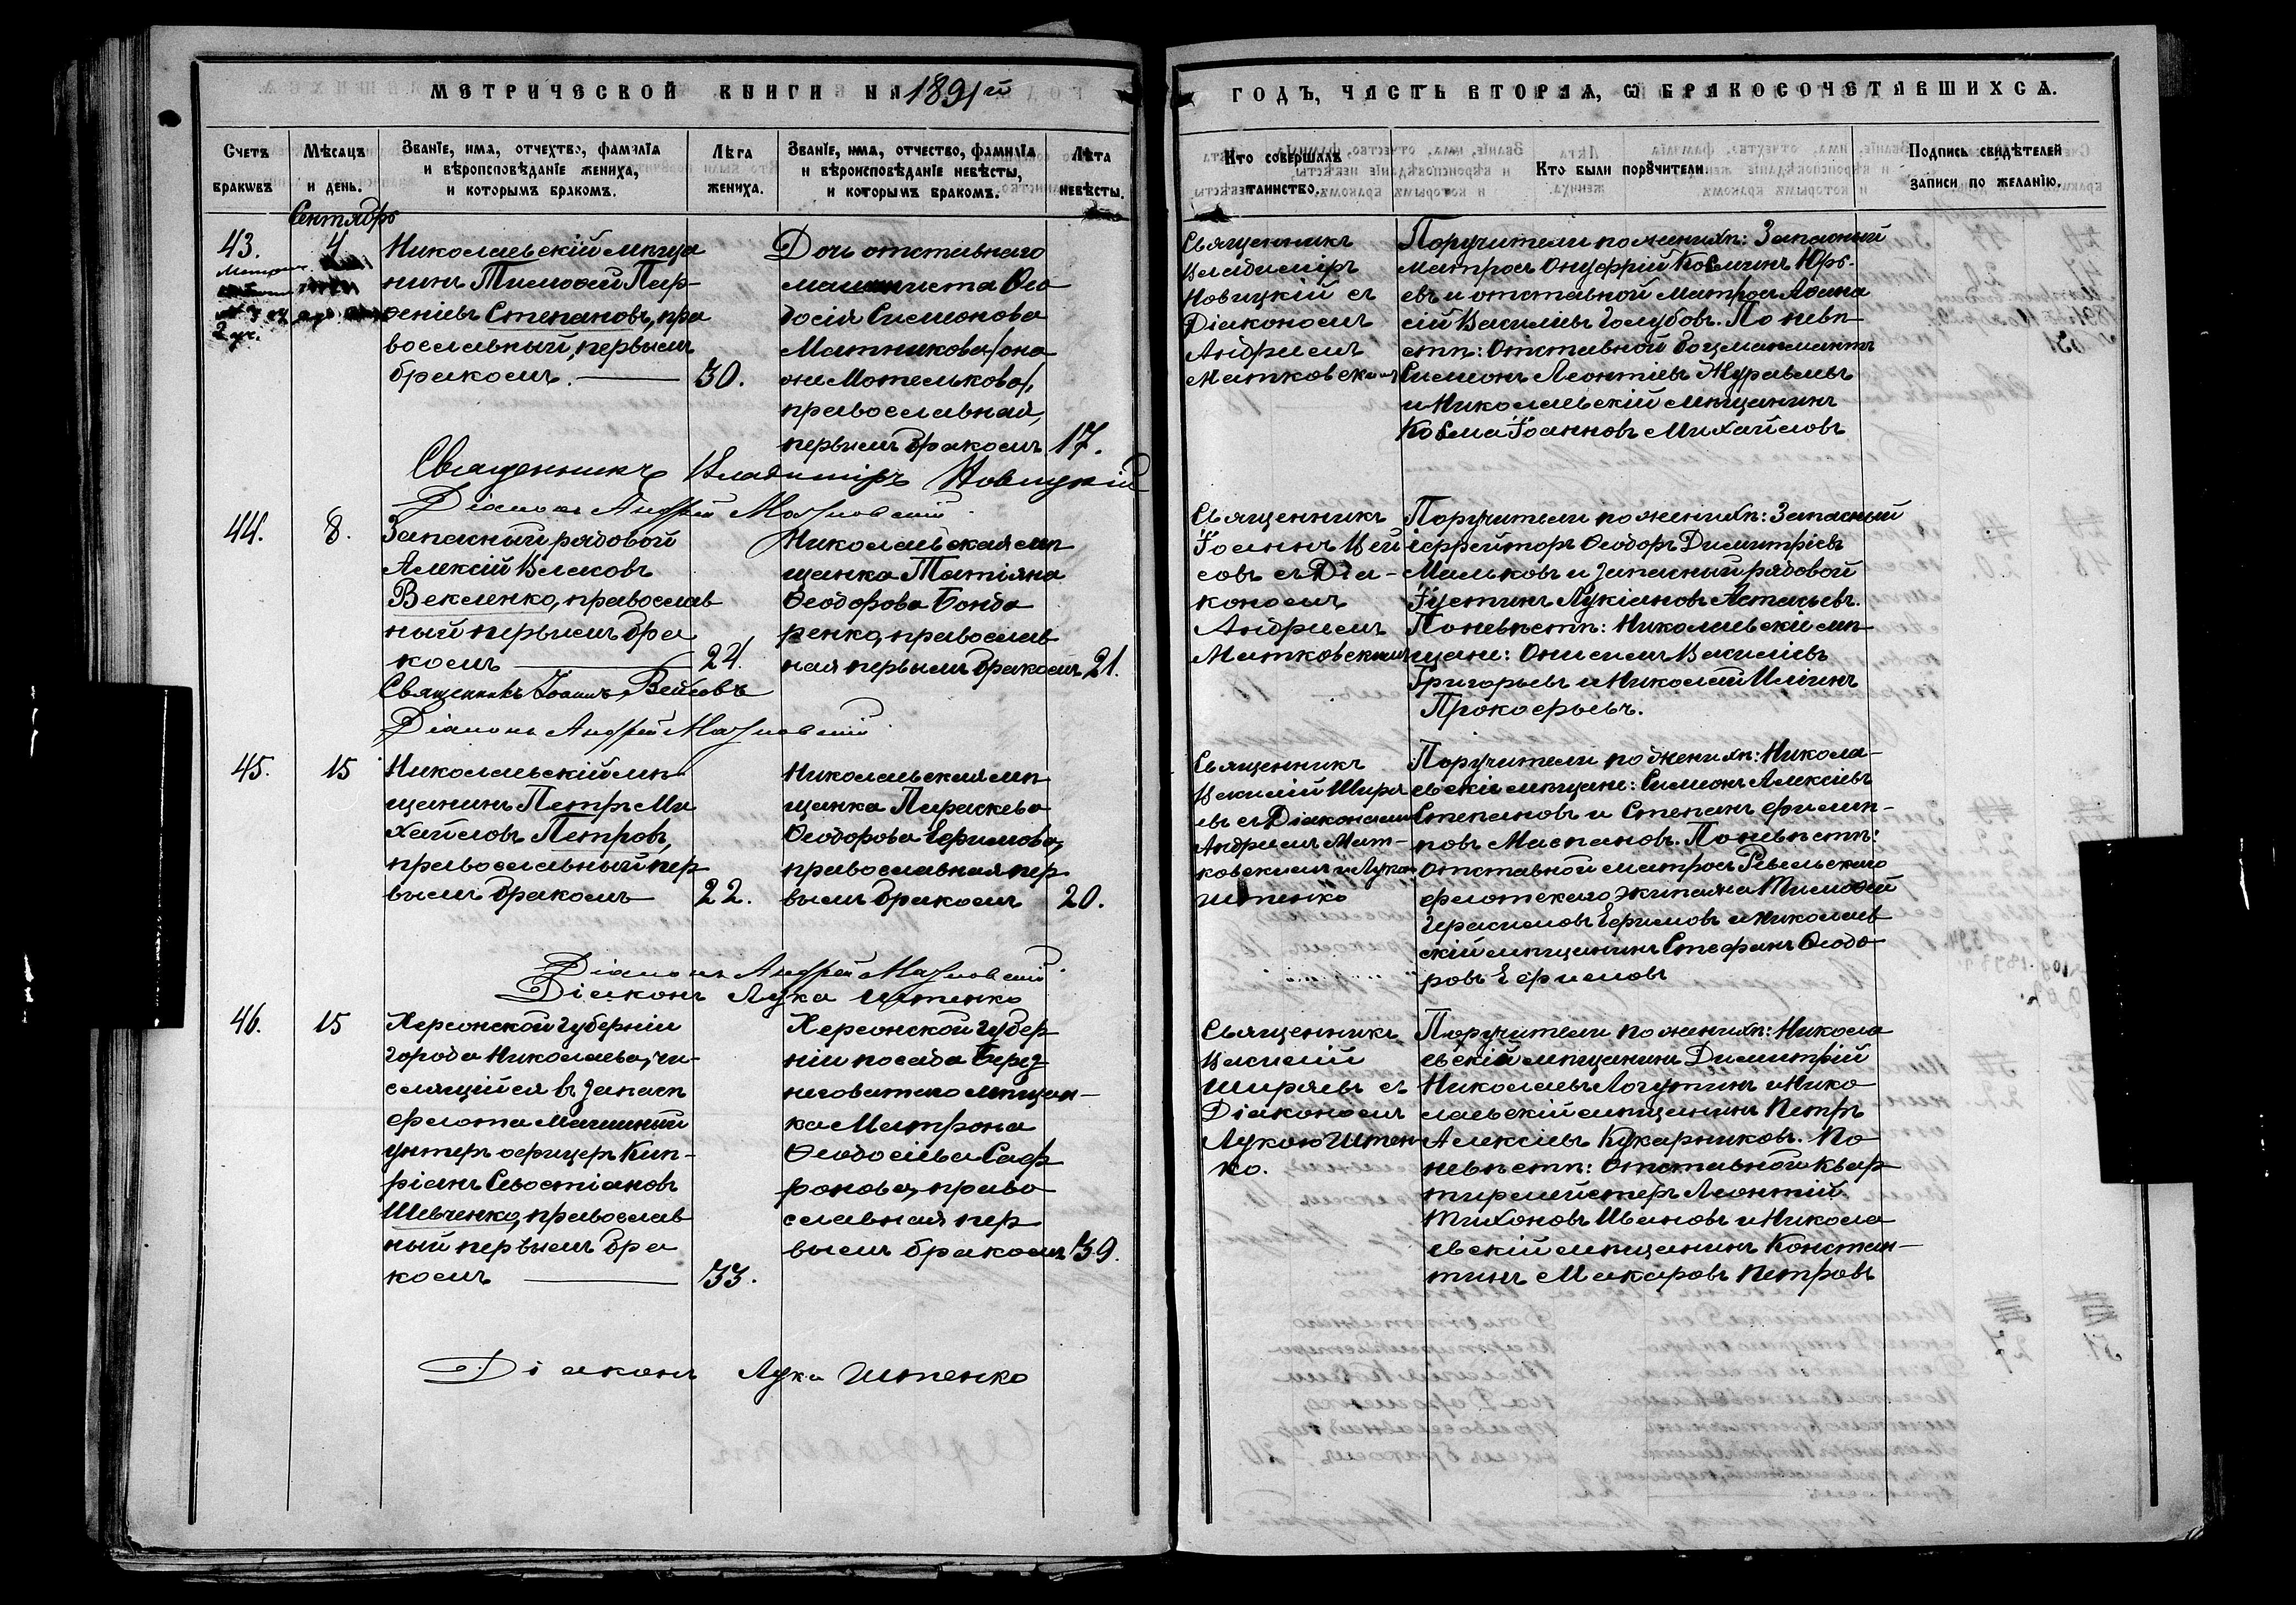 МЕТРИЧЕСКОЙ КНИГИ НА 1891й
ГОДЪ, ЧАСТЬ ВТОРАЯ, Ѡ БРАКОСОЧЕТАВШИХСЯ.
Счетъ браковъ.
Мѣсяцъ и день.
Званіе, имя, отчество, фамилія и вѣроисповѣданіе жениха, и которымъ бракомъ.
Лѣта жениха.
Званіе, имя, отчество, фамилія и вѣроисповѣданіе невѣсты, и которымъ бракомъ.
Лѣта невѣсты.
Кто совершалъ таинство.
Кто были поручители.
Подпись свидѣтелей записи по желанію.
Сентябрь
43.
4
Николаевскій мѣща
нинъ Тимоѳей Пар-
ѳеніевъ Степановъ, пра
вославный, первымъ
бракомъ. — 30.
Дочь отставнаго
машиниста Ѳео
досія Симеонова
Матникова /она
же Мотелькова/,
православная,
первымъ бракомъ 17.
Священникъ
Владиміръ
Новицкій съ
Діакономъ
Андреемъ
Матковскимъ
Поручители по женихѣ: Запасный
матросъ Онуфрій Козминъ Юрь-
евъ и отставной матросъ Аѳана
сій Василіевъ Голубовъ. По невѣ
стѣ: Отставной боцманматъ
Симеонъ Леонтіевъ Журавлевъ
и Николаевскій мѣщанинъ
Козма Іоанновъ Михайловъ
Священникъ Владиміръ Новицкій
Діаконъ Андрей Матковскій
44.
8.
Запасный рядовой
Алексій Власовъ
Векленко, православ
ный первымъ бра
комъ — 24.
Николаевская мѣ
щанка Татіана
Ѳеодорова Бонда
ренко, православ
ная первымъ бракомъ 21.
Священникъ
Іоаннъ Вей
совъ съ Діа-
кономъ
Андреемъ
Матковскимъ
Поручители по женихѣ: Запасный
ефрейторъ Ѳеодоръ Димитріевъ
Мальковъ и запасный рядовой
Іустинъ Лукіановъ Астасьевъ.
По невѣстѣ: Николаевскіе мѣ
щане: Онисимъ Василіевъ
Григорьевъ и Николай Иліинъ
Прокофьевъ.
Священникъ Іоаннъ Вейсовъ
Діаконъ Андрей Матковскій
45.
15
Николаевскій мѣ
щанинъ Петръ Ми
хайловъ Петровъ,
православный пер
вымъ бракомъ 22.
Николаевская мѣ
щанка Параскева
Ѳеодорова Ефимова,
православная пер
вымъ бракомъ 20.
Священникъ
Василій Ширя
евъ съ Діаконами
Андреемъ Мат-
ковскимъ и Лукою
Штенко
Поручители по женихѣ: Никола-
евскіе мѣщане: Симеонъ Алексіевъ
Степановъ и Степанъ Филип-
повъ Маспановъ. По невѣстѣ:
отставной матросъ Ревельскаго
флотскаго экипажа Тимоѳей
Герасимовъ Ефимовъ и Николаев
скій мѣщанинъ Стефанъ Ѳеодо
ровъ Ефимовъ
Діаконъ Андрей Матковскій
Діаконъ Лука Штенко
46.
15
Херсонской губерніи
города Николаева, чи-
слящійся въ запасѣ
флота Машинный
унтеръ офицеръ Кип-
ріанъ Севостіановъ
Шевченко, православ
ный первымъ бра
комъ — 33.
Херсонской губер
ніи посада Берез
неговатаго мѣщан-
ка Матрона
Ѳеодосіева Саф
ронова, право
славная пер
вымъ бракомъ 39.
Священникъ
Василій
Ширяевъ съ
Діакономъ
Лукою Штен
ко.
Поручители по женихѣ: Никола
евскій мѣщанинъ Димитрій
Николаевъ Логутинъ и Нико
лаевскій мѣщанинъ Петръ
Алексіевъ Кухарниковъ. По
невѣстѣ: Отставной квар
тирмейстеръ Леонтій
Тихоновъ Ивановъ и Никола
евскій мѣщанинъ Констан-
тинъ Макаровъ Петровъ
Діаконъ Лука Штенко